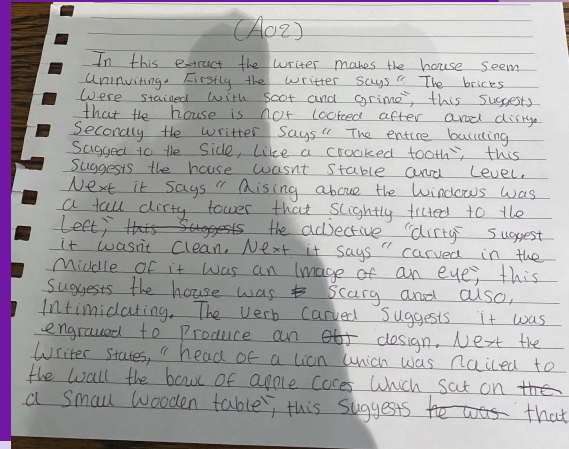 (AO2)
In this extract the writer makes the house seem
uninviting. Firstly the writter says " The bricks
were stained with soot and grime", this suggests
that the house is not looked after and
Secondly the writter says " The entire building
sagged to the side, like a crooked tooth", this
suggests the house wasnt stable and level.
Next it says " Rising above the windows was
a tall dirty tower that slightly tilted to the
left", this suggests the adjective "dirty" suggest
it wasn't clean. Next it says " carved in the
middle of it was an image of an eye", this
suggests the house was scary and also,
intimidating. The verb carved suggests it was
engraved to produce an obj design. Next the
writer states, " head of a lion which was nailed to
the wall the bowl of apple cores which sat on the
a small wooden table", this suggests he was that